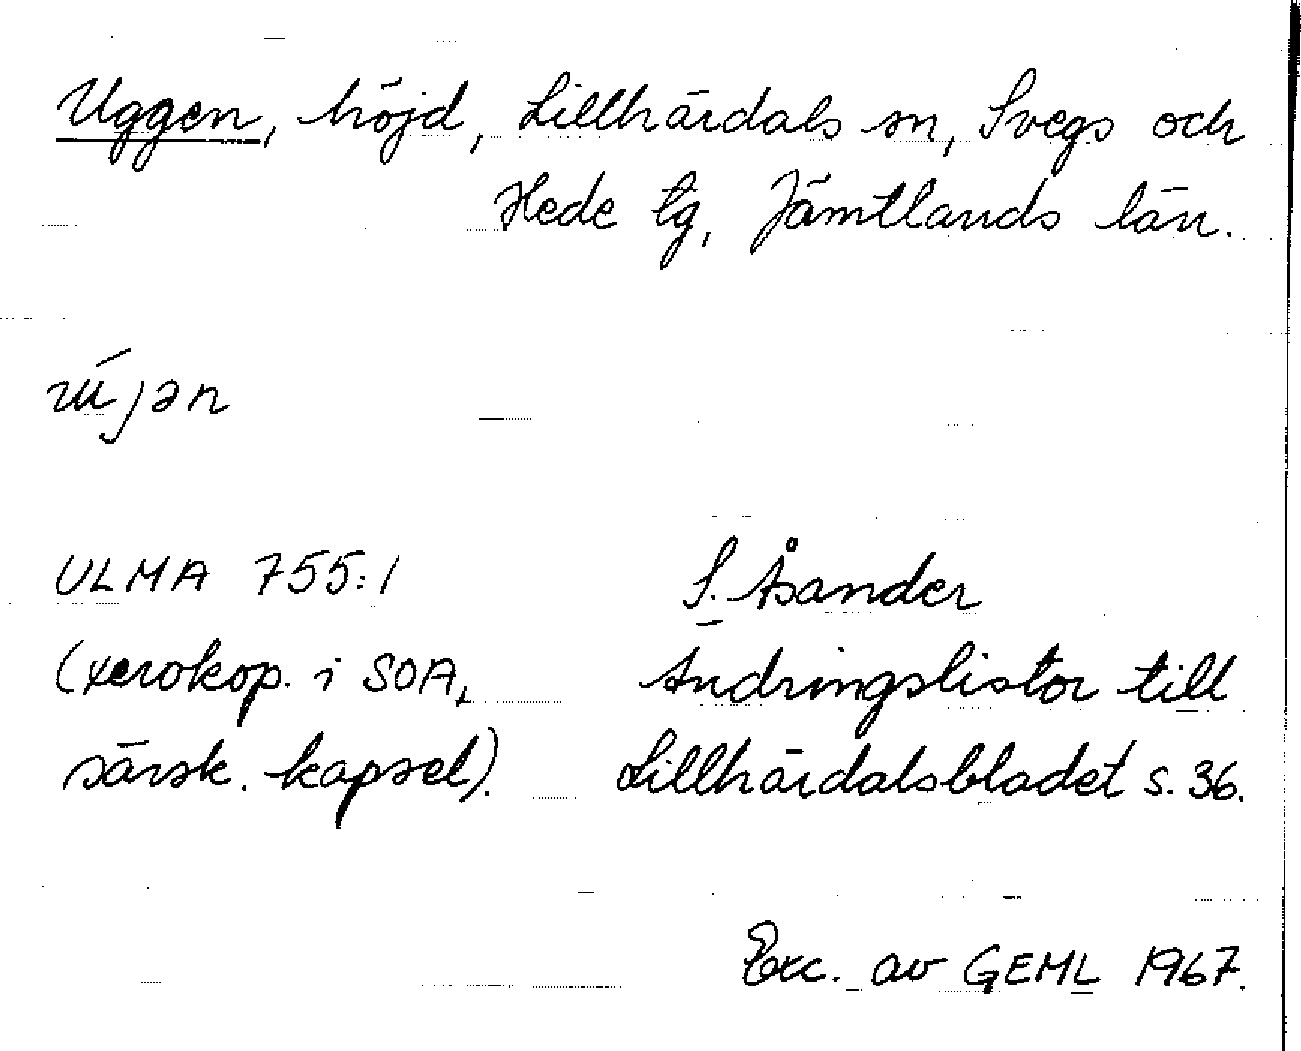 Uggen, höjd, Lillhärdals sn, Svegs och
Hede tg, Jämtlands län.
ULMA 755:1
(xerokop. i SOA,
särsk. kapsel).
S. Åsander
Ändringslistor till
Lillhärdalsbladet s. 36.
Exc. av GEML 1967.